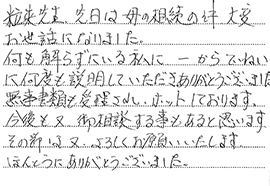 先生、先日は母の相続の件 大変
お世話になりました。
何も解らずにいる私に 一からていねい
に何度も説明していただきありがとうございました
無事書類も受理され、ホットしております。
今後も又 御相談する事もあると思います
その節は又、よろしくお願いいたします。
ほんとうにありがとうございました。